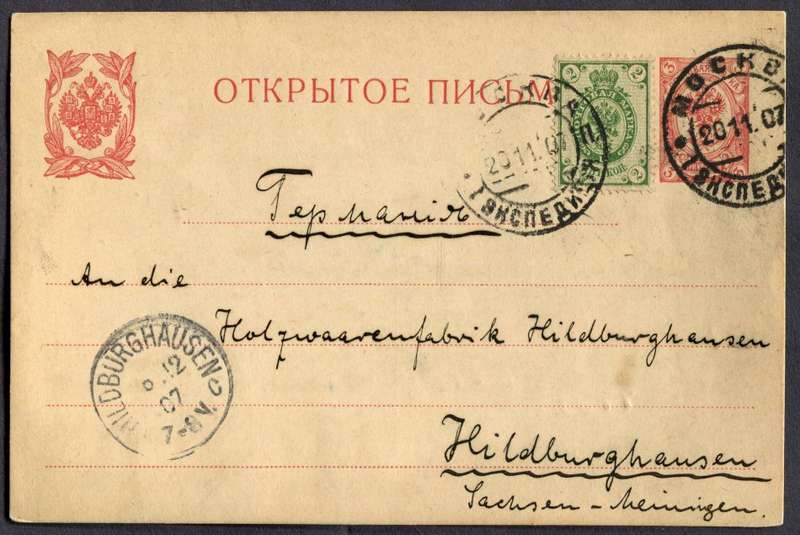 ОТКРЫТОЕ ПИСЬМО
2 2
2 КОП. 2
3
3 3
МОСКВА
20 11. 07
1 ЭКСПЕДИЦІЯ
20 11. 07
1 ЭКСПЕДИЦІЯ
Германія
An die
Holzwaarenfabrik Hildburghausen
HILDBURGHAUSEN
12
07
7-8 V.
Hildburghausen
Sachsen-Meiningen.